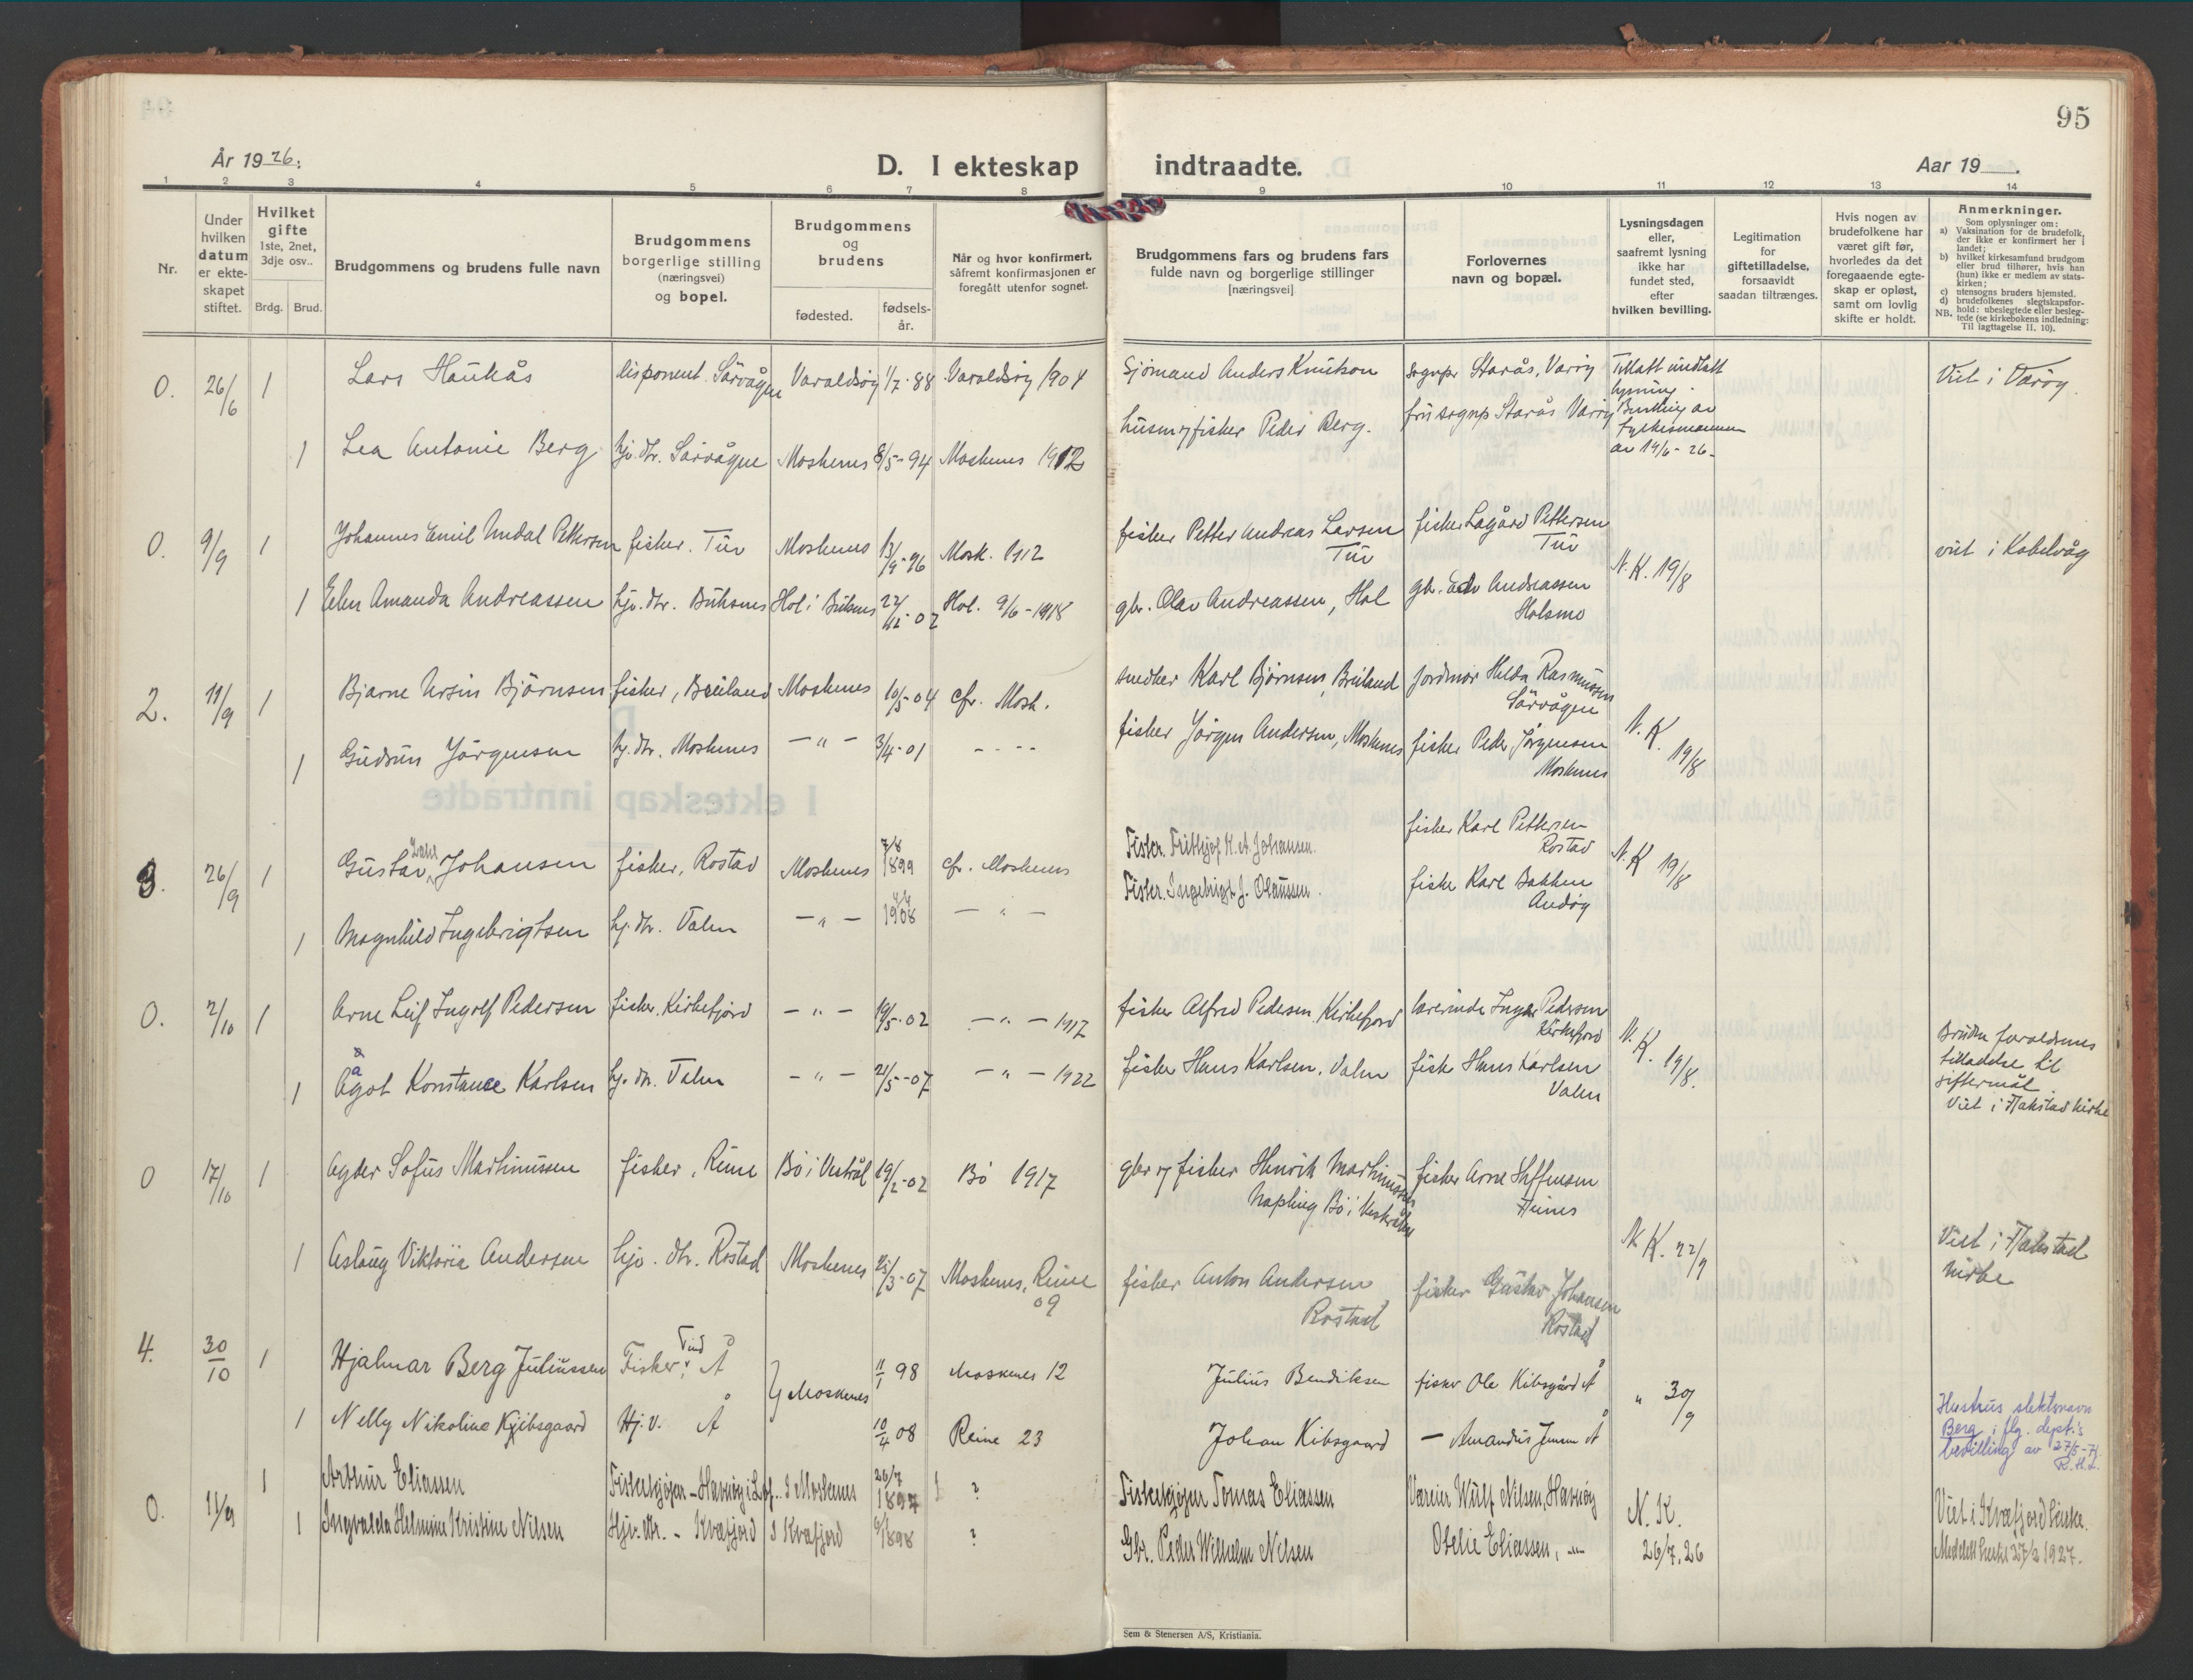 95
År 1926.
D. I ekteskap indtraadte.
Aar 19
1 2 3 4 5 6 7 8 9 10 11 12 13 14
Nr.
Under hvilken datum er ekteskapet stiftet.
Hvilket gifte 1ste, 2net, 3dje osv..
Brdg. Brud.
Brudgommens og brudens fulle navn
Brudgommens borgerlige stilling (næringsvei) og bopel.
Brudgommens og brudens
fødested.
fødsels-år.
Når og hvor konfirmert, såfremt konfirmasjonen er foregått utenfor sognet.
Brudgommens fars og brudens fars fulde navn og borgerlige stillinger [næringsvei]
Forlovernes navn og bopæl.
Lysningsdagen eller, saafremt lysning ikke har fundet sted, efter hvilken bevilling.
Legitimation for giftetilladelse, forsaavidt saadan tiltrænges.
Hvis nogen av brudefolkene har været gift før, hvorledes da det foregaaende egteskap er opløst, samt om lovlig skifte er holdt.
Anmerkninger.
Som oplysninger om:
a) Vaksination for de brudefolk, der ikke er konfirmert her i landet;
b) hvilket kirkesamfund brudgom eller brud tilhører, hvis han (hun) ikke er medlem av statskirken;
c) utensogns bruders hjemsted.
d) brudefolkenes slegtskapsforhold: ubeslegtede eller beslegtede (se kirkebokens indledning: NB. Til iagttagelse II. 10).
0. 26/6 1 Lars Haukås disponent. Sørvågen Varaldsøy 1/7-88 Varaldsøy 1904 Sjømand Anders Knutson sognpr Starås, Værøy Tillatt undlatt lysning. Viet i Værøy.
1 Lea Antonie Berg hj. dtr. Sørvågen Moskenes 8/5-94 Moskenes 1912 husm og fisker Peder Berg. fru sognp Starås Værøy Bevilling av fylkesmannen av 14/6-26.
0. 9/9 1 Johannes Emil Undal Pettersen fisker. Tin Moskenes 13/9-96 Mosk. 1912 fisker Petter Andreas Larsen Tin fisker Lagård Pettersen Tin N.K. 19/8 viet i Kabelvåg
1 Elen Amanda Andreassen hj. dtr. Buksnes Hol i Buksnes 22/12-02 Hol. 9/6-1918 gbr. Olav Andreassen, Hol gbr. Edv Andreassen Holsmo
2. 19/9 1 Bjarne Ursin Bjørnsen fisker, Breiland Moskenes 10/5-04 cfr. Mosk. snedker Karl Bjørnsen, Breiland jordmor Helda Rasmussen Sørvågen N.K. 19/8
1 Gudrun Jørgensen hj. dtr. Moskenes - " - 3/4-01 - - - - fisker Jørgen Andersen, Moskenes fisker Peder Jørgensen Moskenes
3. 26/9 1 Gustav Johansen fisker, Rostad Moskenes 7/8 1899 cfr. Moskenes Fisker. Frithjof K. A. Johansen. fisker Karl Pettersen Rostad N.K 19/8
1 Magnhild Ingebrigtsen hj. dtr. Valen - " - 1908 - " - Fisker. Ingebrigt J. Olaussen. fisker Karl Bakken Andøy
0. 2/10 1 Arne Leif Ingolf Pedersen fisker, Kirkefjord - " - 19/5-02 - " - 1917 fisker Alfred Pedersen, Kirkefjord lærerinde Inger Pedersen Kirkefjord N.K. 19/8.
1 Ågot Konstance Karlsen hj. dtr. Valen - " - 21/5-07 - " - 1922 fisker Hans Karlsen, Valen fisker Hans Karlsen Valen
Bruden foreldrenes tilladelse til giftermål. Viet i Flakstad kirke
0 17/10 1 Agder Sofus Martinussen fisker, Reine Bø i Vesterål 19/2-02 Bø 1917 gbr og fisker Henrik Martinussen Bø i Vesterålen fisker Arne Steffensen N.K. 22/9 Viet i Flakstad kirke
1 Aslaug Viktoria Andersen hj. dtr. Rostad Moskenes 23/3-07 Moskenes, Reine 09 fisker Anton Andersen Rostad fisker Gustav Johansen Rostad
4. 30/10 1 Hjalmar Berg Juliussen Fisker, Tind Å Moskenes 11/1 98 Moskenes 12 Julius Bendiksen fisker Ole Kibsgård Å " 30/9
1 Nelly Nikoline Kjibsgaard Hj. v. Å 10/4 08 Reine 23 Johan Kibsgaard - Amandus Jensen Å
Hustrus slektsnavn Berg i flg. dept's bevilling av 27/5-71. R.H.L.
0. 11/9 1 Arthur Eliassen Fiskekjøper - Havnøy i Lof. I Moskenes 26/7 1897 ? Fiskekjøper Tomas Eliassen Væreier Wulf Nilsen, Havnøy N.K. 26/7.26 Viet i Kvæfjord kirke.
1 Ingvalda Helmine Kristine Nilsen Hjv. dtr. - Kvæfjord I Kvæfjord 6/1 1898 ? Gbr. Peder Wilhelm Nilsen Otelie Eliassen, - " - Meddelt hertil 27/2 1927.
Sem & Stenersen A/S, Kristiania.